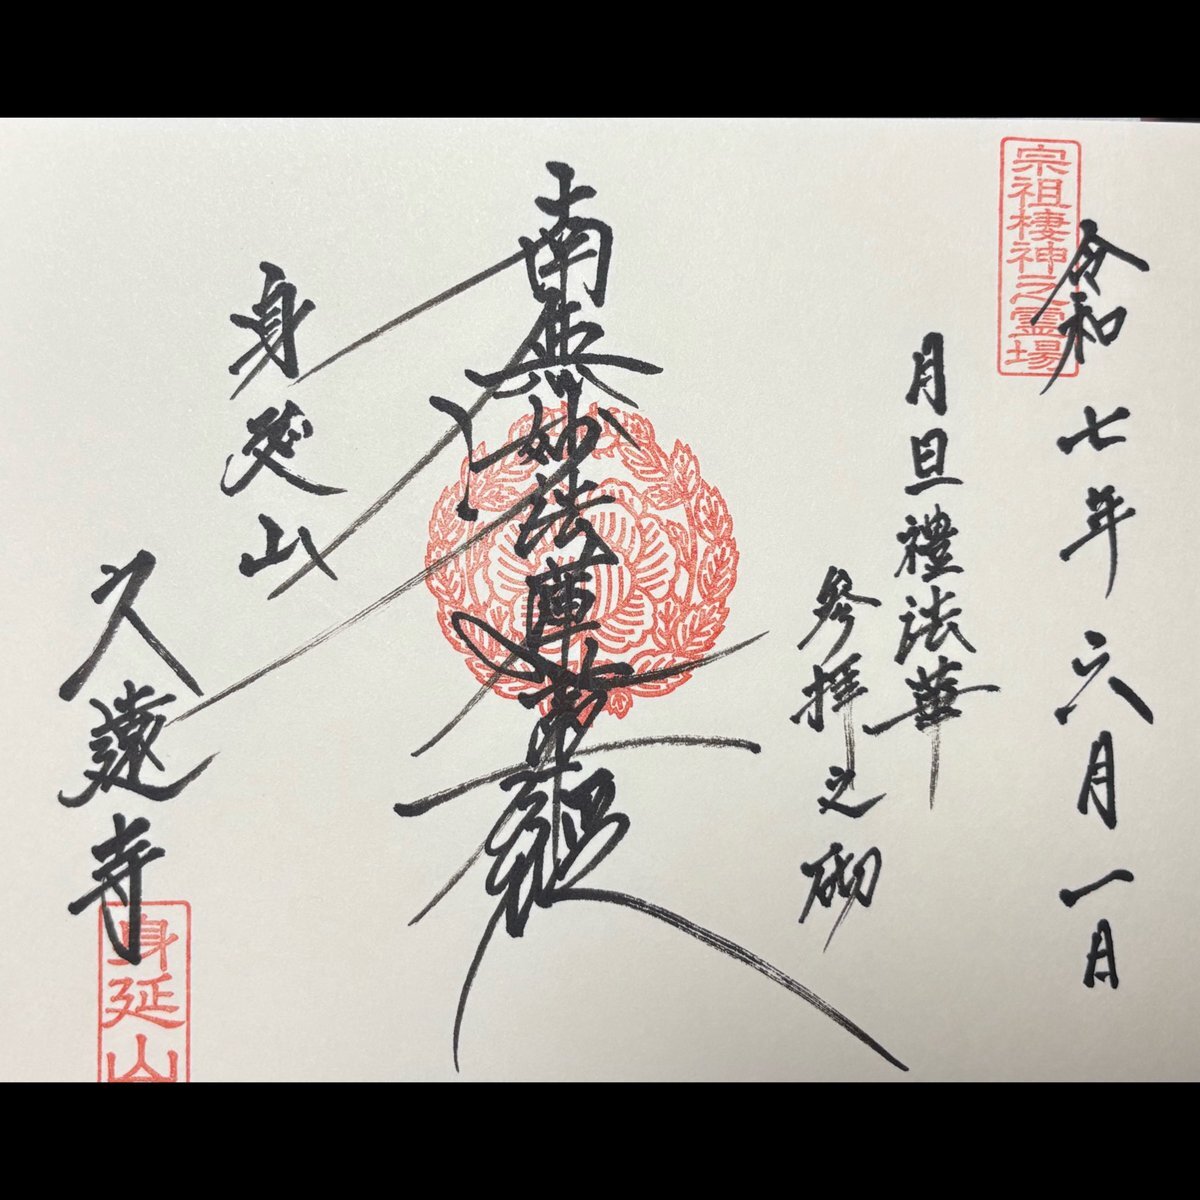 宗祖棲神之霊場
令和七年六月一日
月旦禮法華
参拝之砌
南無妙法蓮華経
身延山
久遠寺
身延山